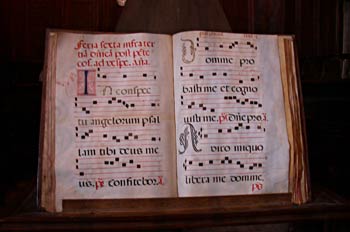 Feria sexta infra ter
tiā dñicā post pēte
cos. ad vespe. Aña.
In conspec
tu angelorum psal
lam tibi deus me
us. ps. Confitebor
Domine pro
basti me et cogno
uisti me. ps. Dñe pro
Ab viro iniquo
libera me domine
ps